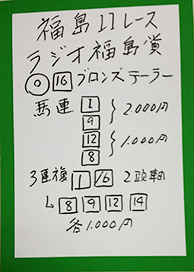 福島11レース
ラジオ福島賞
◎ 16 ブロンズテーラー
馬連 1 } 2000円
9
12 } 1.000円
8
3連複 1 16 2段軸
8 9 12 14
各1.000円